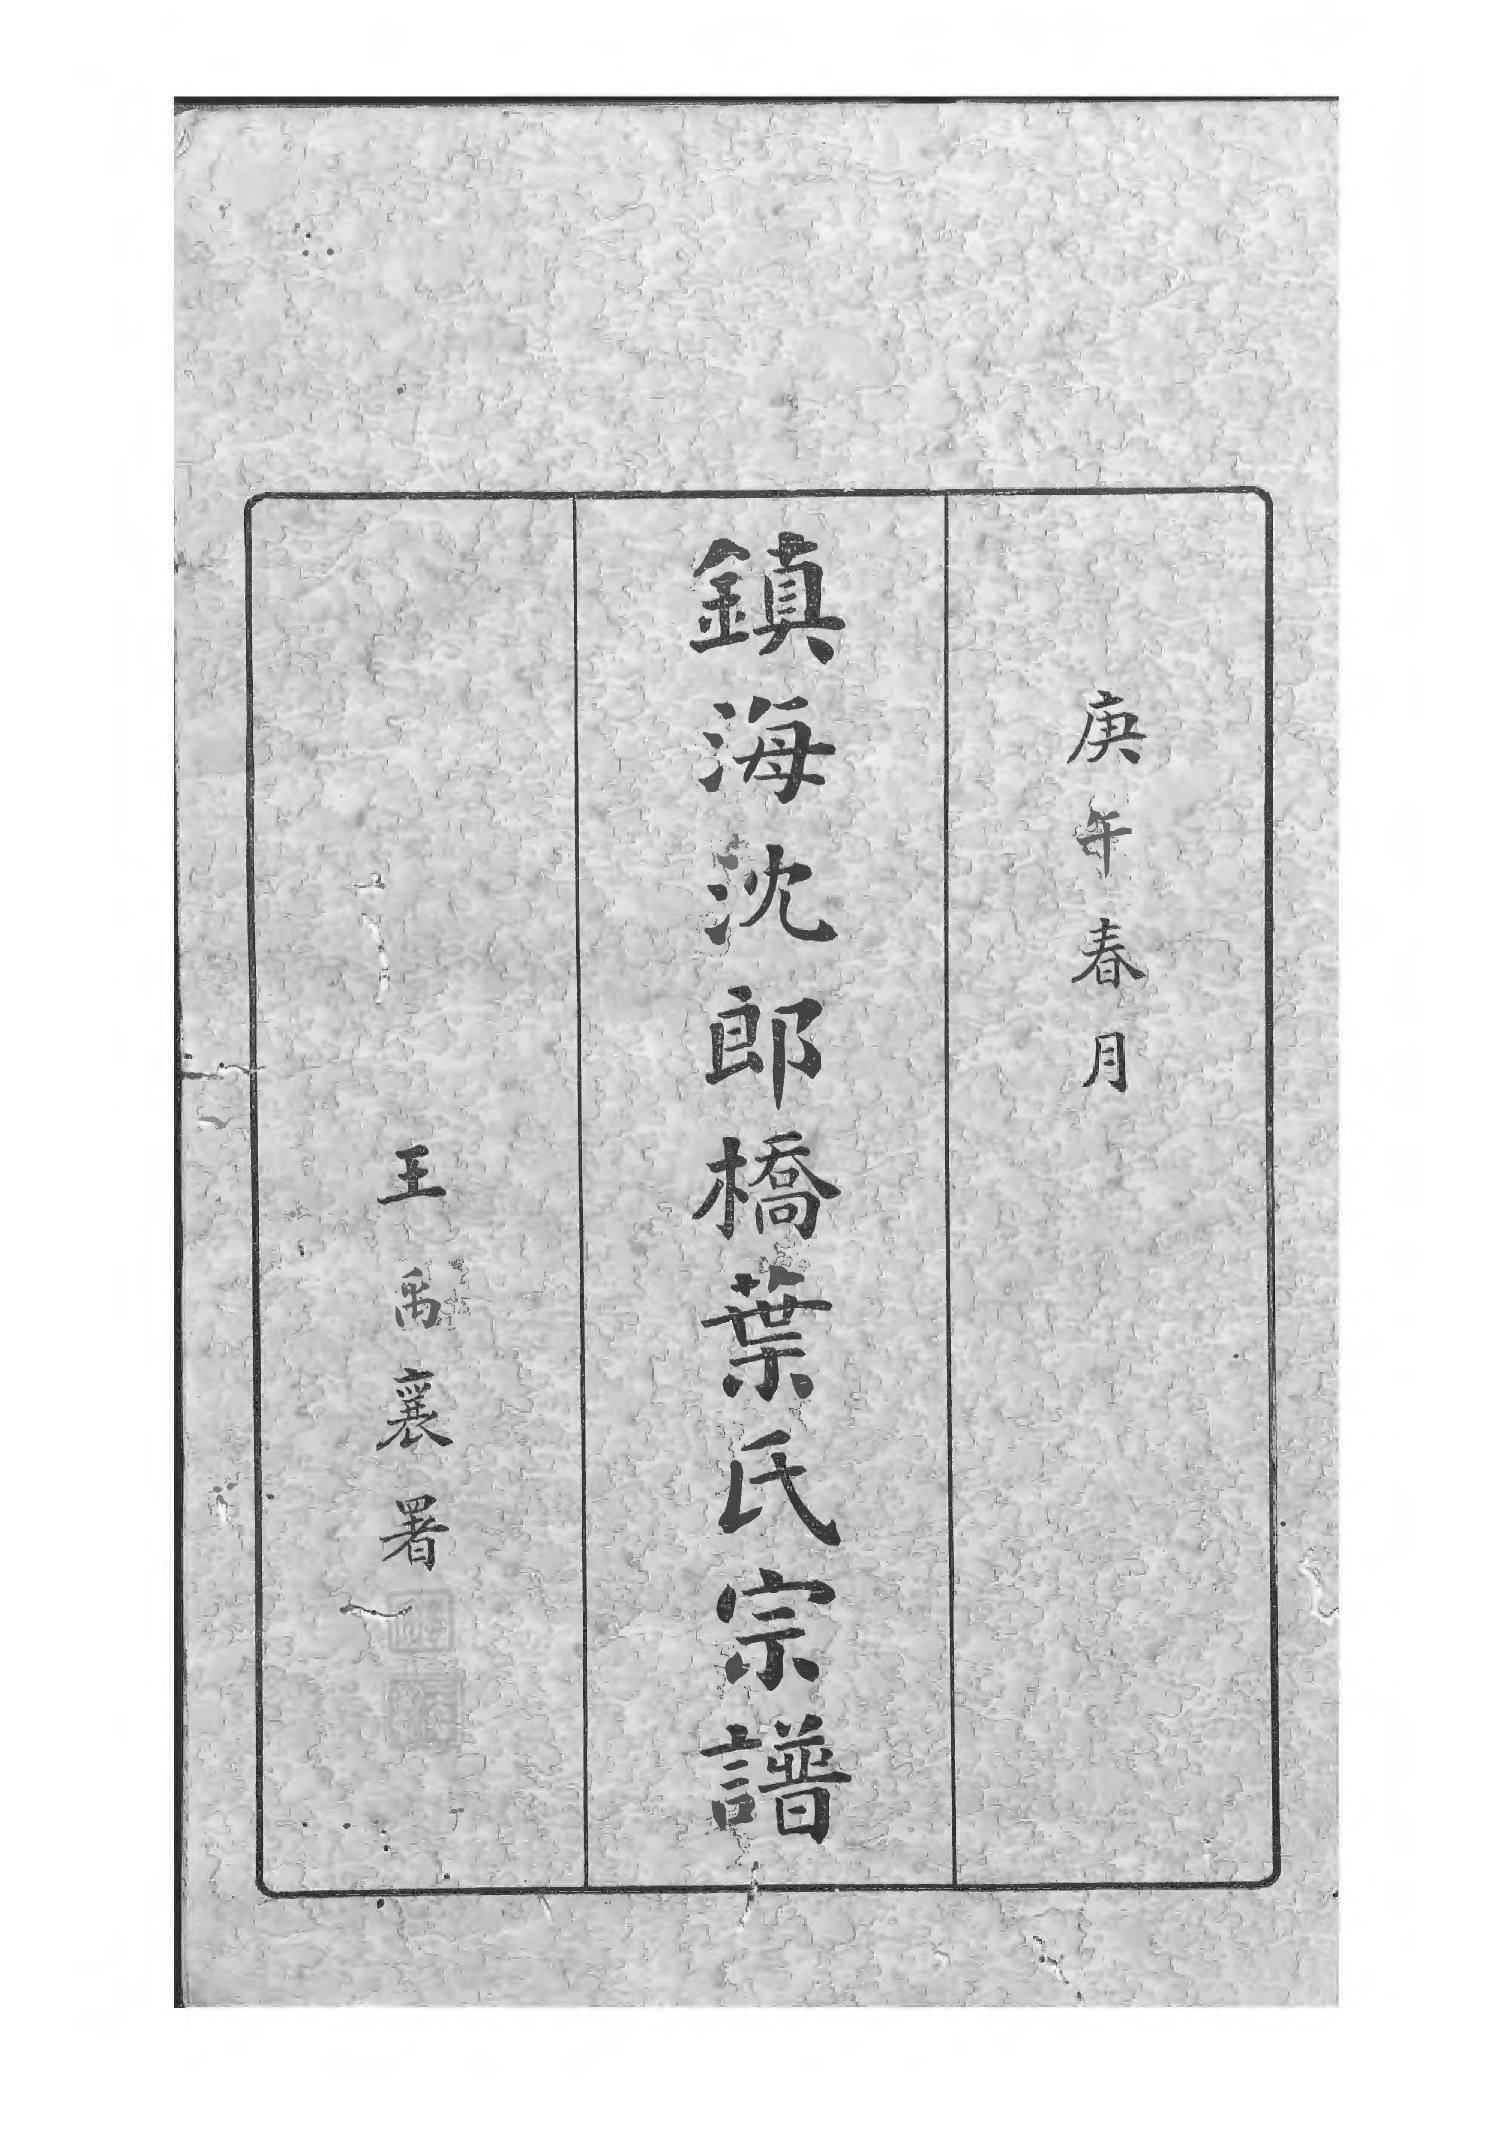 庚午春月
鎮海沈郎橋葉氏宗譜
王禹襄署